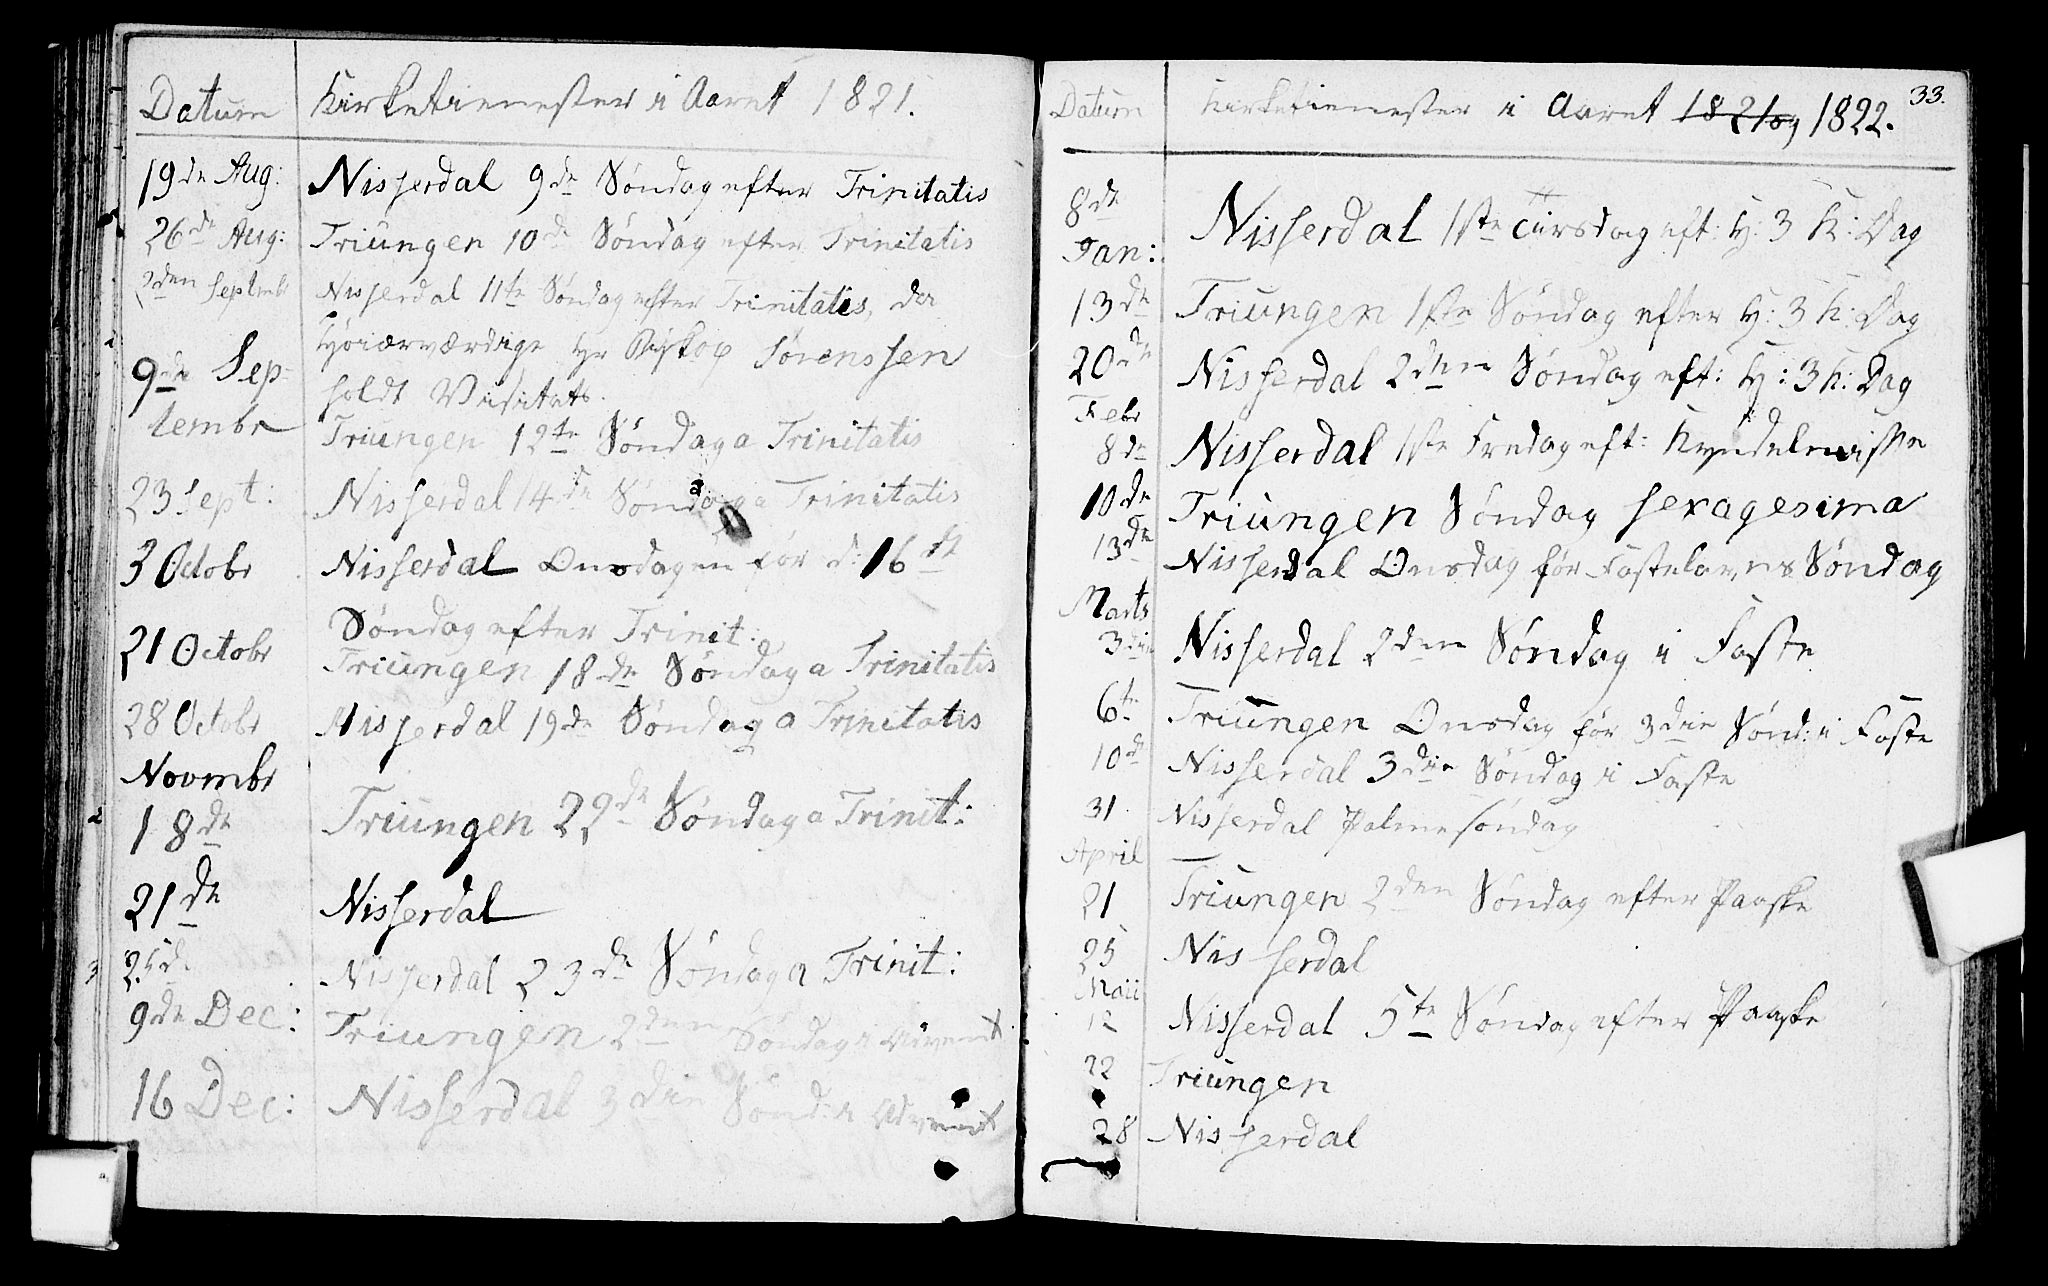 Datum Kirketienester i Aaret 1821.
19de Aug: Nisserdal 9de Søndag efter Trinitatis
26de Aug: Triungen 10de Søndag efter Trinitatis
2den Septembr Nisserdal 11te Søndag efter Trinitatis, da
Høiærværdige Hr Biskop Sørenssen
9de Sep-
holdt Visitats.
tembr Triungen 12te Søndag a Trinitatis
23 Sept: Nisserdal 14de Søndag a Trinitatis
3 Octobr Nisserdal Onsdagen før d: 16de
Søndag efter Trinit:
21 Octobr Triungen 18de Søndag a Trinitatis
28 Octobr Nisserdal 19de Søndag a Trinitatis
Novmbr
18de Triungen 22de Søndag a Trinit:
21de Nisserdal
25d. Nisserdal 23de Søndag a Trinit:
9de Dec: Triungen 2den Søndag i Advent
16 Dec: Nisserdal 3die Sønd: i Advent
33.
Datum Kirketienester i Aaret 1821 og 1822.
8de
Jan: Nisserdal 1ste Tirsdag eft: H: 3 K: Dag
13de Triungen 1ste Søndag efter H: 3 K: Dag
20de Nisserdal 2den Søndag eft: H: 3 K: Dag
Febr
8de Nisserdal 1ste Fredag eft: Kyndelmisse
10de Triungen Søndag Sexagesima
13de Nisserdal Onsdag før Fastelavns Søndag
Marts
3die Nisserdal 2den Søndag i Faste
6te Triungen Onsdag før 3die Sønd: i Faste
10de Nisserdal 3die Søndag i Faste
31 Nisserdal Palmesøndag
April
21 Triungen 2den Søndag efter Paaske
25 Nisserdal
Maii
12 Nisserdal 5te Søndag efter Paaske
22 Triungen
28 Nisserdal